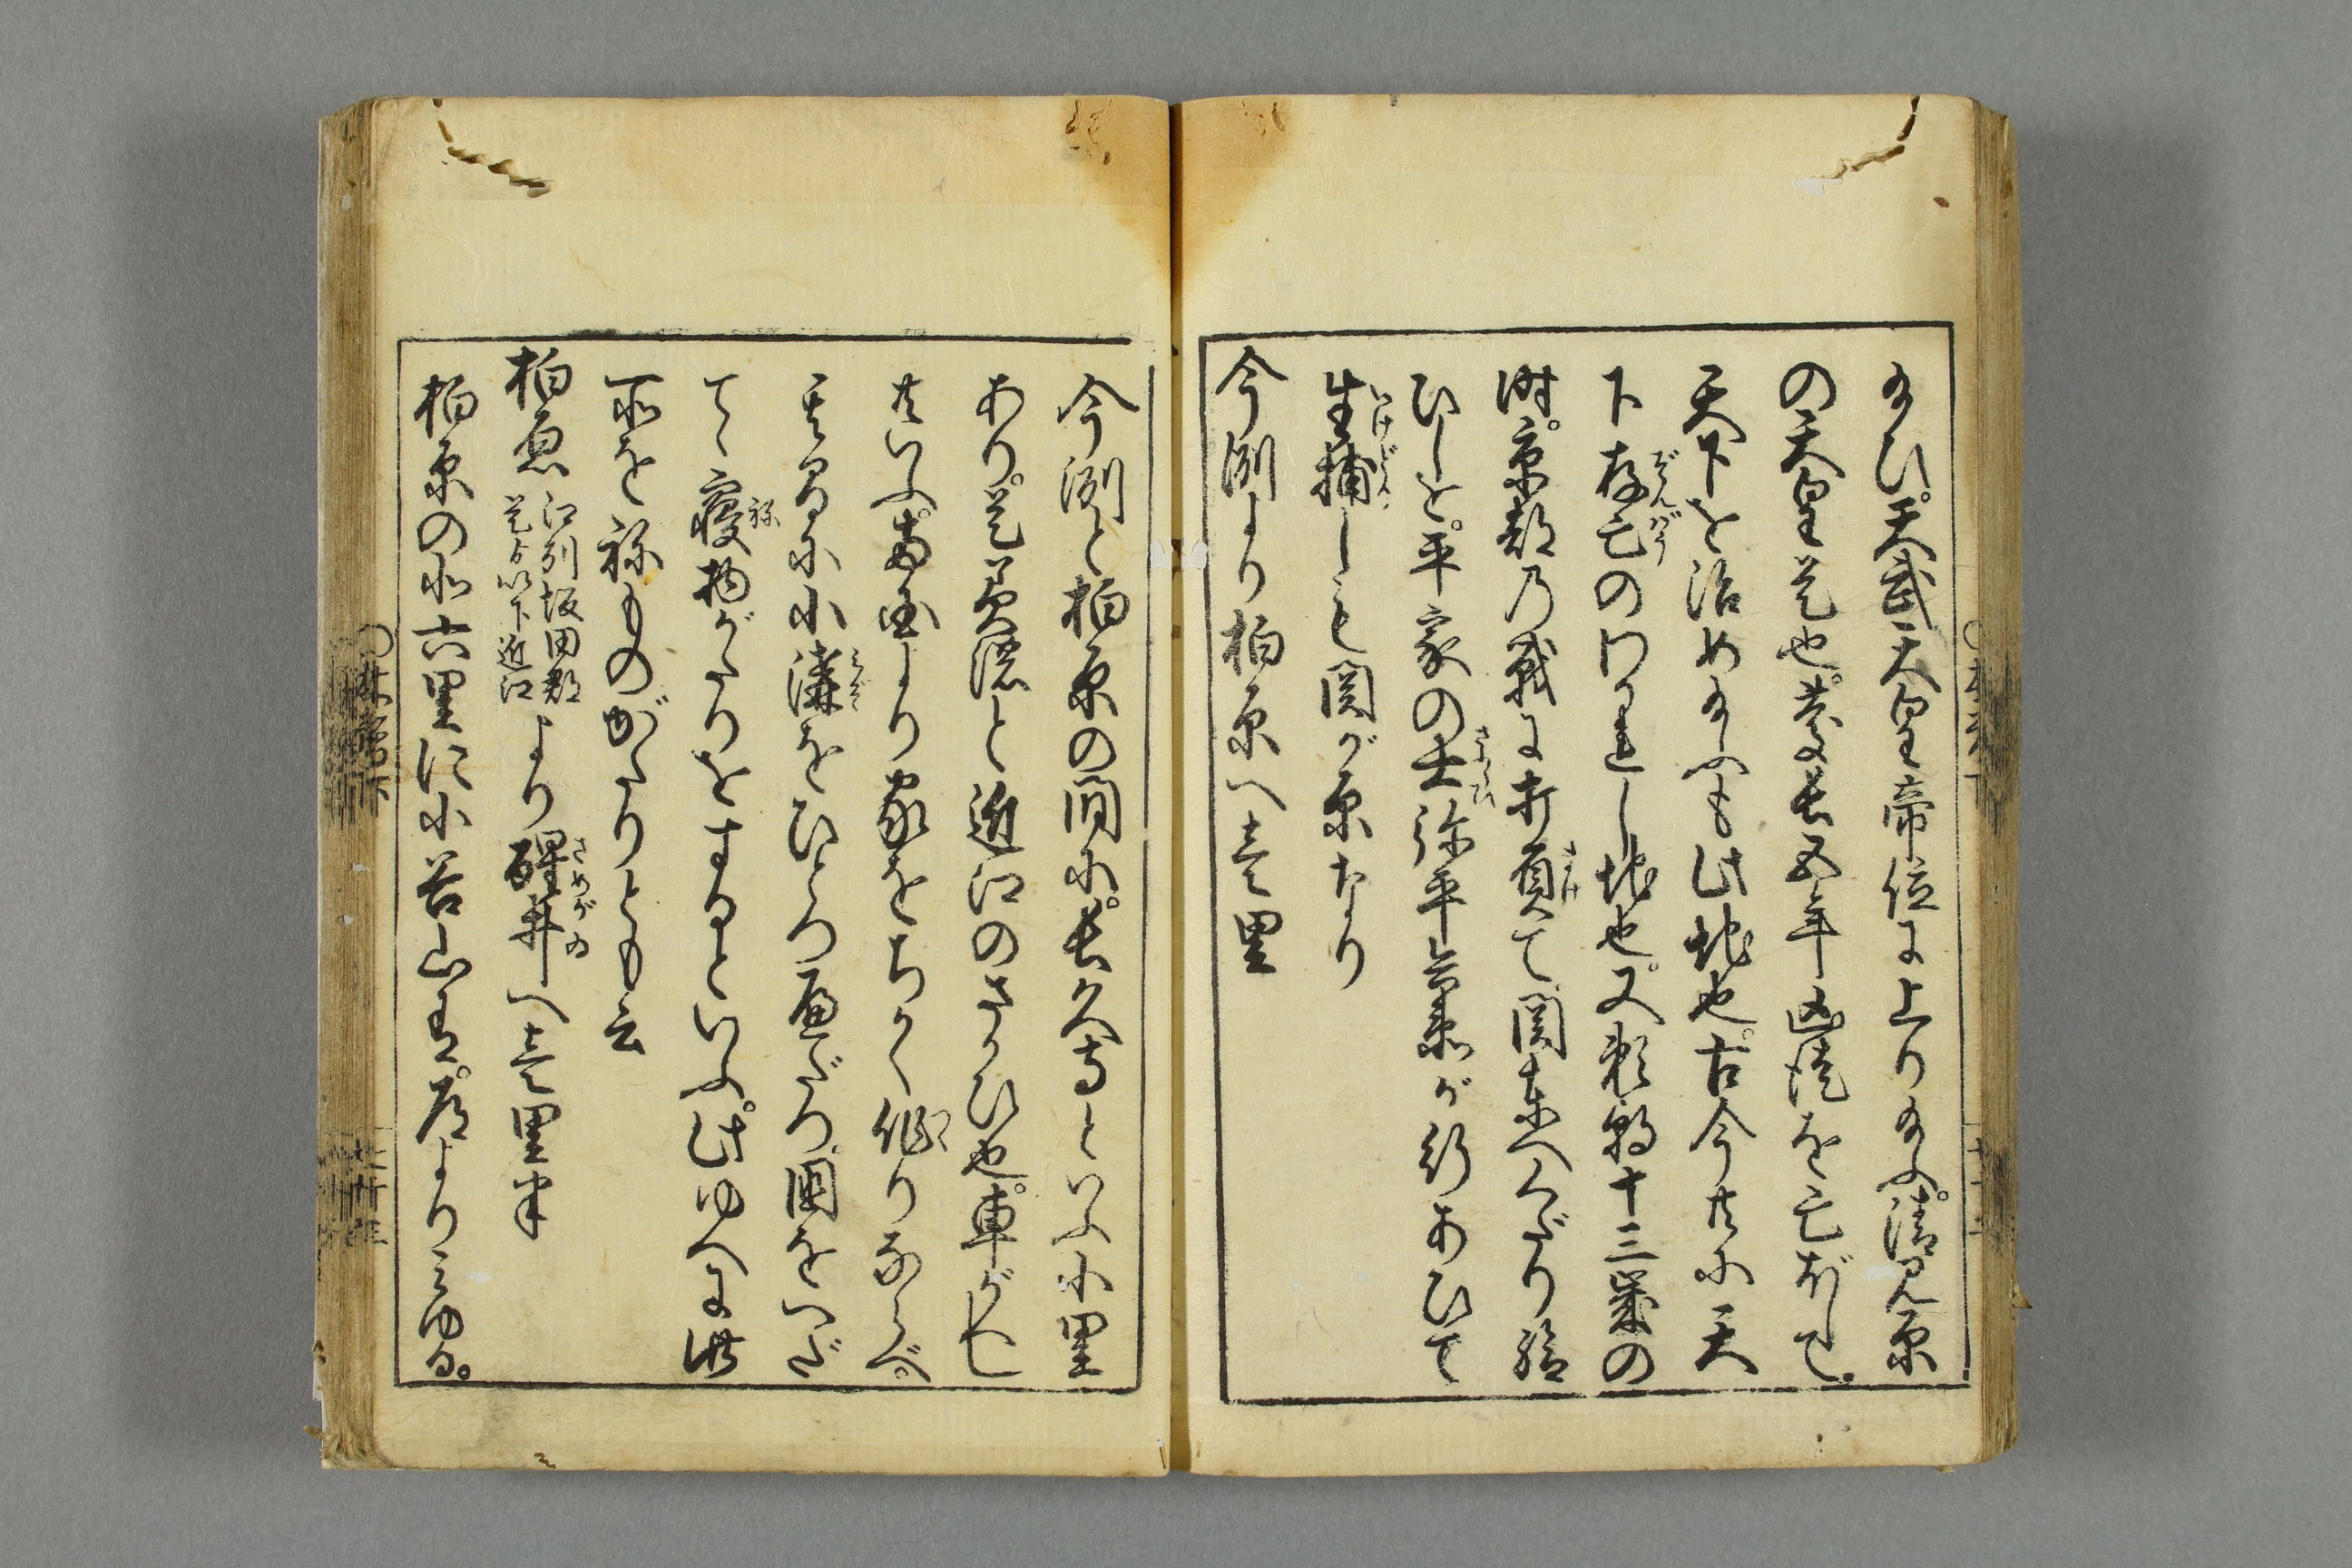 給ひ。天武天皇帝位に上り給ふ。清見原
の天皇是也。慶長五年凶徒を亡ぼして。
天下を治め給ふも此地也。古今共に天
下存亡のわかれし地也。又頼朝十三歳の
時。京都乃戦に打負て関東へくだり給
ひしを。平家の士弥平兵衛が行あひて
生捕しも関が原なり
今洲より柏原へ壱里
今洲と柏原の間に。長久寺といふ小里
あり。是美濃と近江のさかひ也。車がへし
共いふ。両国より家をちかく作りならべ。
其間に小溝をひとつへだつ。国をへだ
てゝ寝物がたりをするといふ。此ゆへに此
所をねものがたりとも云
柏原 江州坂田郡 是より以下近江 より醒井へ壱里半
柏原の北六里に小谷山有。道よりみゆる。